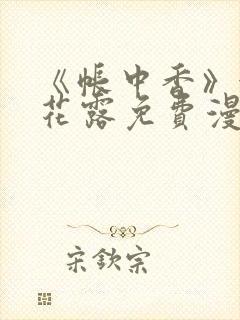 《帐中香》
花露免费漫
宋钦宗